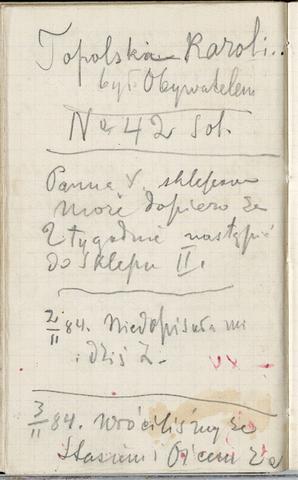 Topolska Karoli..
był Obywatelem
No 42 Sol.
Panna V. sklepowa
może dopiero za
2 tygodnie nastąpić
do sklepu II.
2/II 84. Niedopisała mi
i dziś Z.
3/II 84. Wróciliśmy ze
Stasiem i Ojcem z